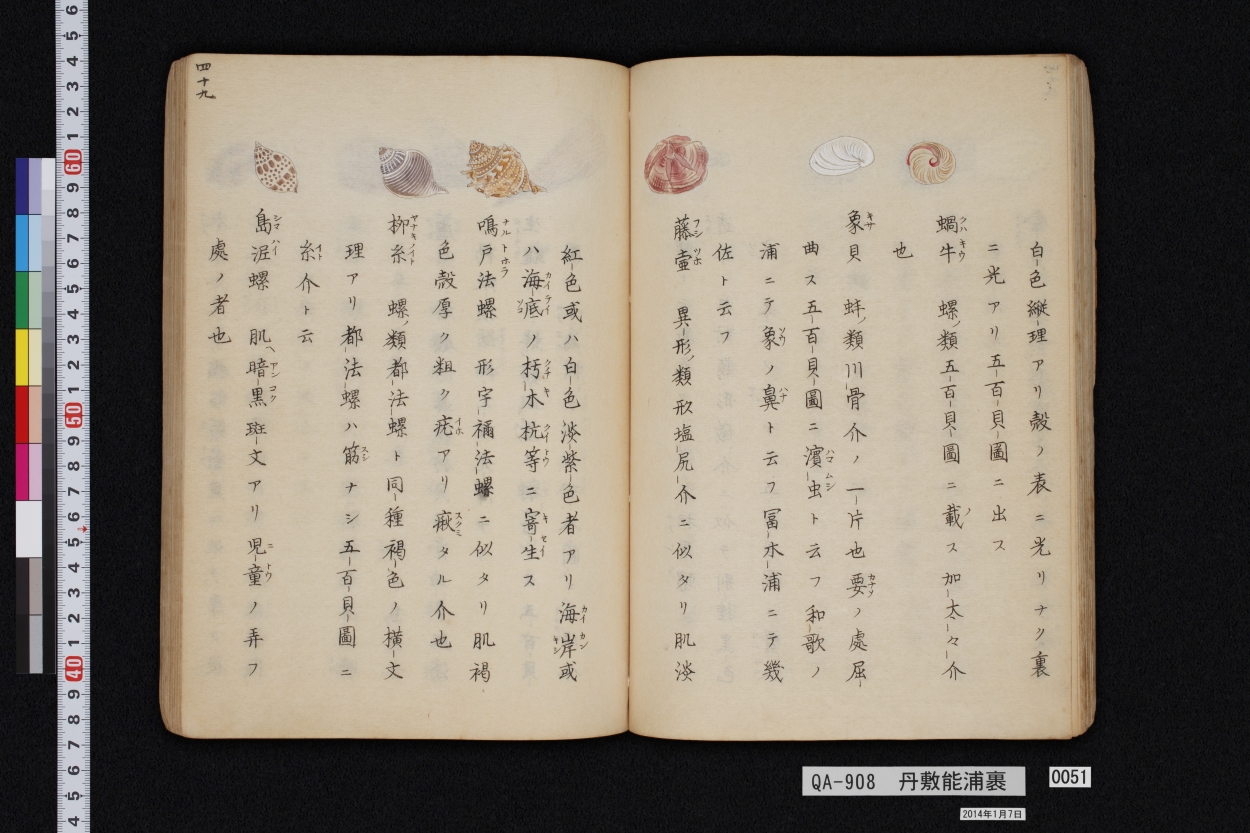 白色縦理アリ殻ノ表ニ光リナク裏
ニ光アリ五百貝圖ニ出ス
蝸牛 螺ノ類五百貝圖ニ載ス加太々介
也
象貝 蚌ノ類川骨介ノ一片也要ノ處屈
曲ス五百貝圖ニ濱虫ト云フ和歌ノ
浦ニテ象ノ鼻ト云フ冨木浦ニテ幾
佐ト云フ
藤壷 異形ノ類形塩尻介ニ似タリ肌淡
紅色或ハ白色淡紫色者アリ海岸或
ハ海底ノ朽木杭等ニ寄生ス
鳴戸法螺 形宇禰法螺ニ似タリ肌褐
色殻厚ク粗ク疣アリ瘶タル介也
柳糸 螺ノ類都法螺ト同種褐色ノ横文
理アリ都法螺ハ筋ナシ五百貝圖ニ
糸介ト云
島涅螺 肌ヘ暗黒斑文アリ児童ノ弄フ
處ノ者也
四十九
QA-908 丹敷能浦裹
0051
2014年1月7日